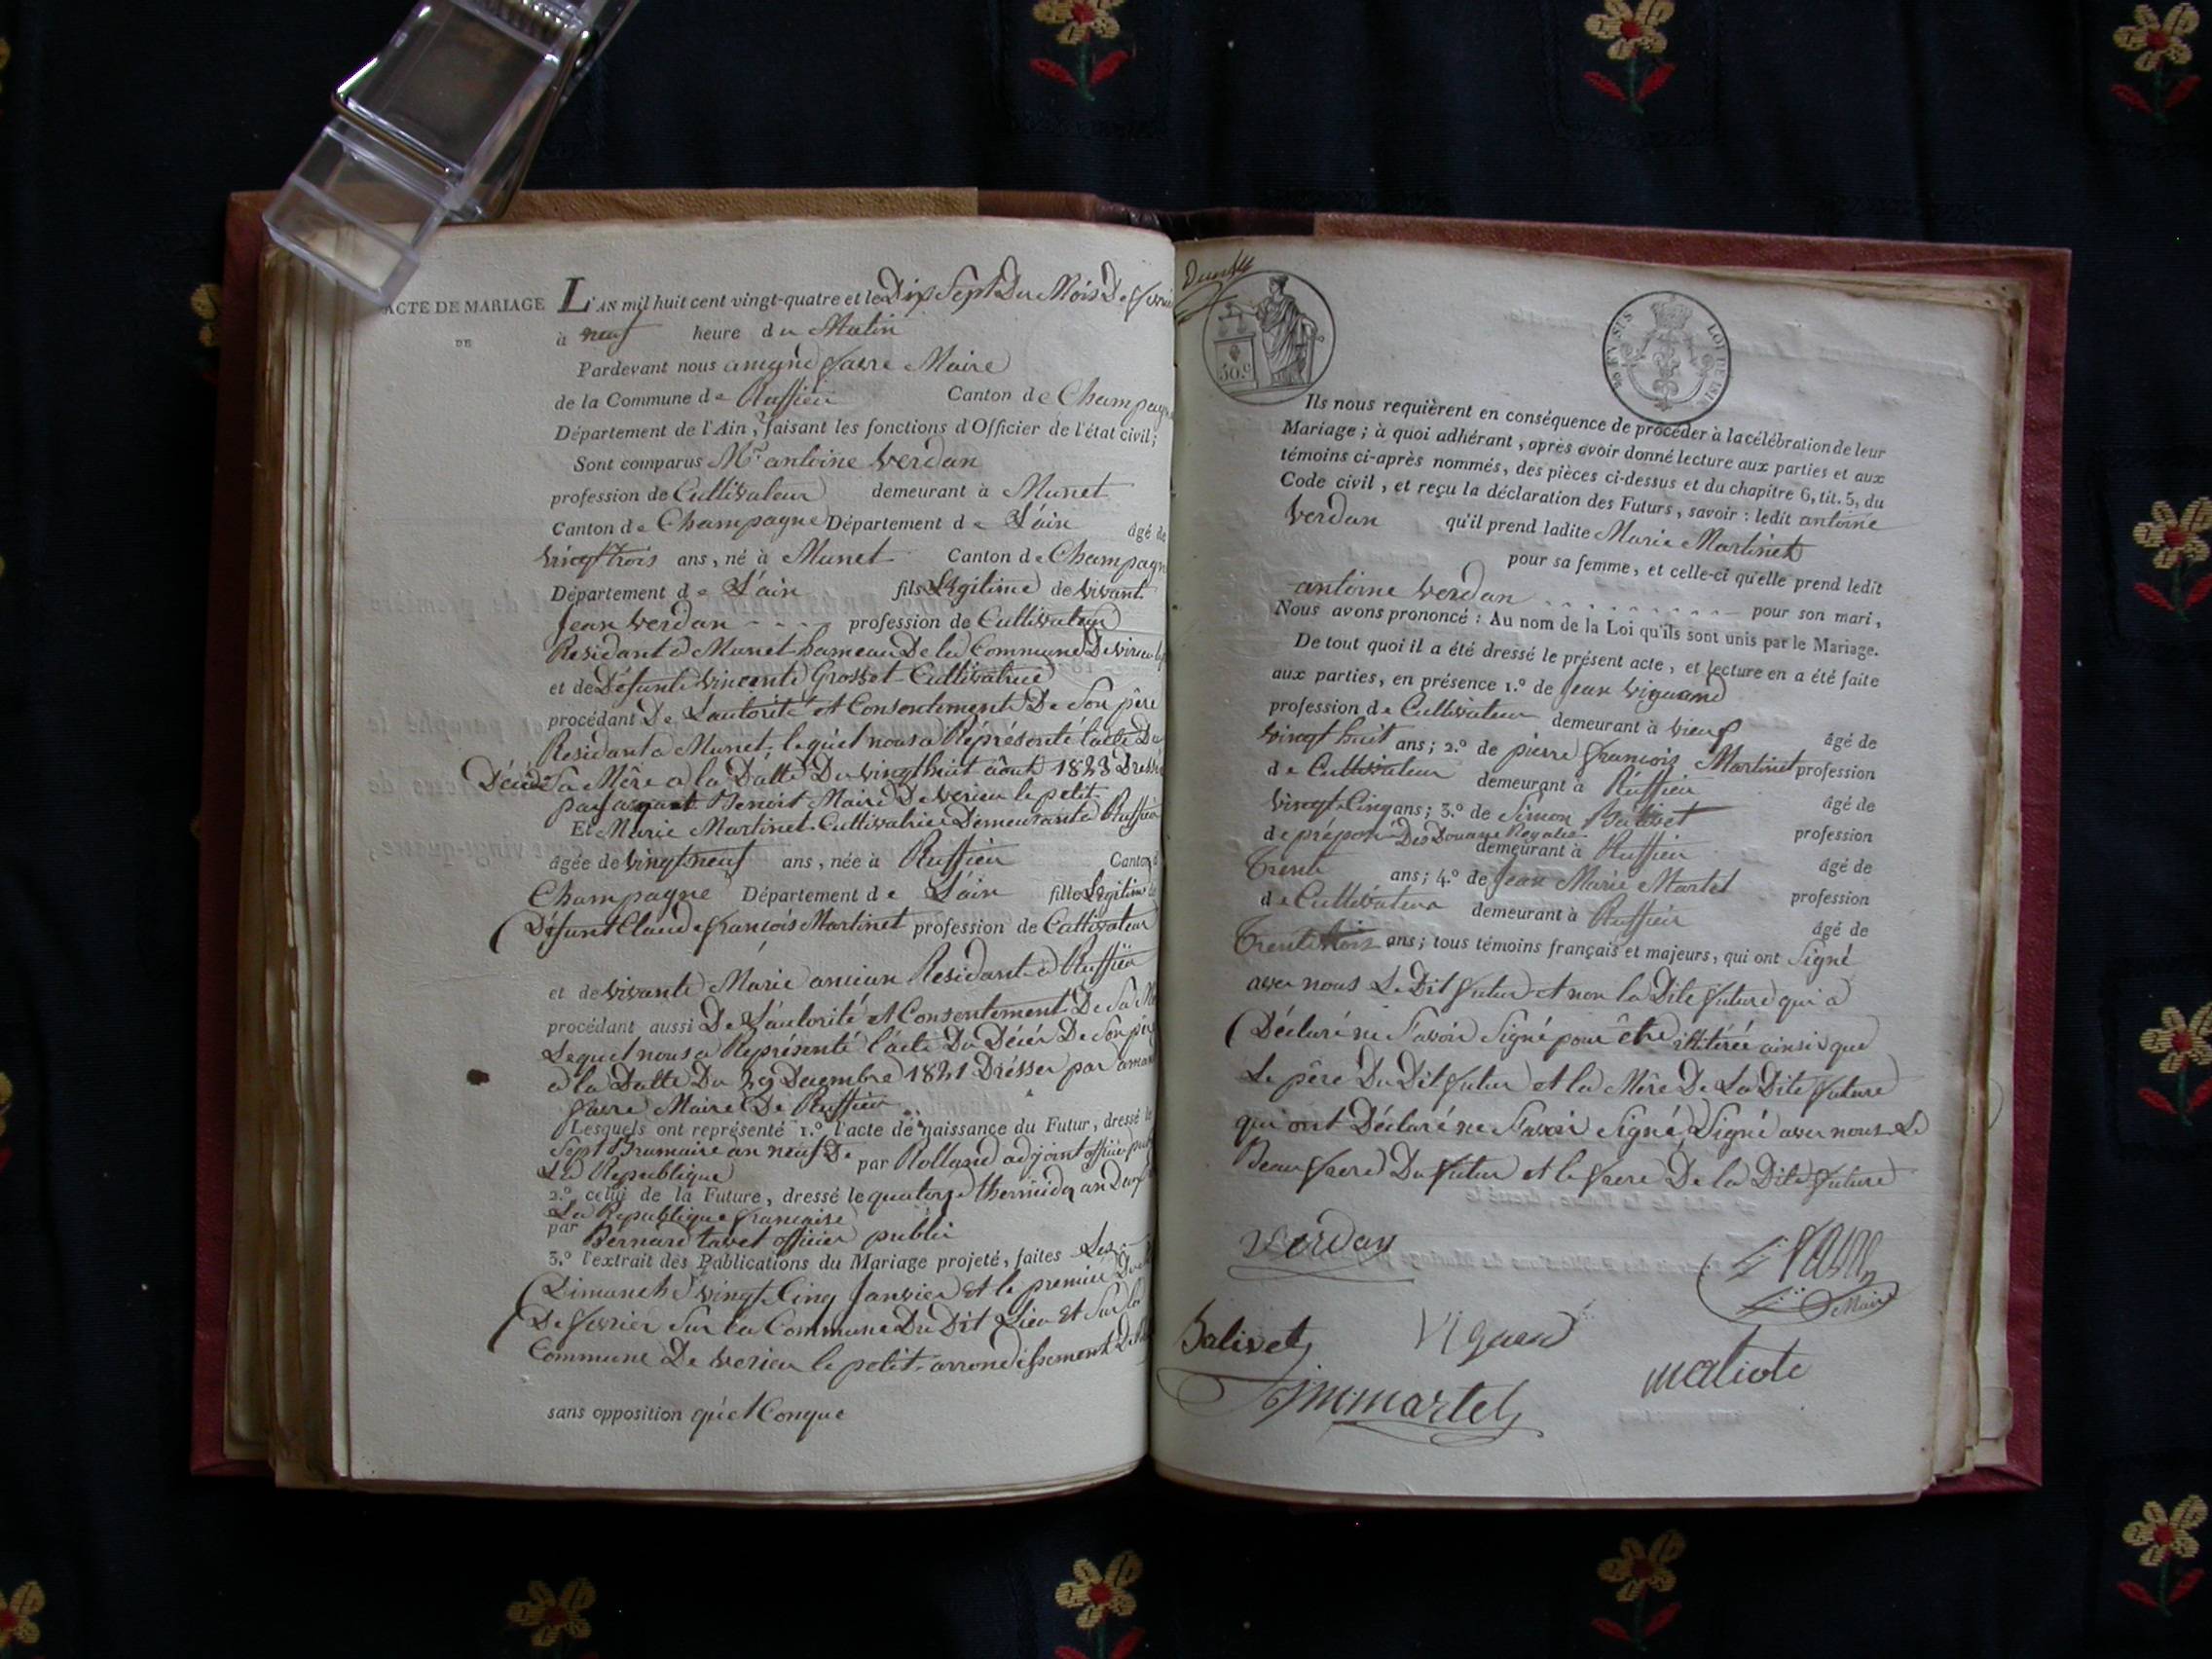 ACTE DE MARIAGE
DE
L'AN mil huit cent vingt-quatre et le Dix Sept Du Mois De fevrie
à neuf heure du Matin
Pardevant nous favre Maire
de la Commune de Ruffieu Canton de Champagn
Département de l'Ain, faisant les fonctions d'Officier de l'état civil;
Sont comparus Mr antoine Verdan
profession de Cultivateur demeurant à Munet
Canton de Champagne Département de L'ain âgé de
vingt trois ans, né à Munet Canton de Champagn
Département de L'ain fils Légitime de vivant
Jean Verdan - - - - profession de Cultivateur
Residant a Munet hameau De la Commune De virieu le p
et de Défunte vincente Grosset Cultivatrice
procédant De L'autorité et Consentement De Son père
Residant a Munet, lequel nous a Réprésenté l'acte Du
Décéde Sa Mêre a la Datte Du vingt huit août 1823 Dressé
par Benoit Maire De verieu le petit
Et Marie Martinet Cultivatrice Demeurante a Ruffieu
âgée de vingt neuf ans, née à Ruffieu Canton d
Champagne Département de L'ain fille Légitime de
Défunt Claude françois Martinet profession de Cultivateur
et de vivante Marie Residante a Ruffieu
procédant aussi De L'autorité et Consentement De Sa M
Lequel nous a Réprésenté l'acte Du Décés De Son pér
a la Datte Du 29 Decembre 1821 Drésser par
favre Maire De Ruffieu
Lesquels ont représenté 1.º l'acte de naissance du Futur, dressé le
Sept Brumaire an neuf De par Rolland adjoint officier pub
La Republique
2.º celui de la Future, dressé le quatorze thermidor an Deux
La Republique francaise
par Bernard tavet officier public
3.º l'extrait des Publications du Mariage projeté, faites Les
Dimanche vingt Cinq Janvier et le premier Du
De fevrier Sur la Commune Du Dit Lieu et Sur la
Commune De verieu le petit arrondissement De
sans opposition quélConque
50 c
LOI DE
Ils nous requièrent en conséquence de procéder à la célébration de leur
Mariage; à quoi adhérant, après avoir donné lecture aux parties et aux
témoins ci-après nommés, des pièces ci-dessus et du chapitre 6, tit. 5, du
Code civil, et reçu la déclaration des Futurs, savoir: ledit antoine
Verdan qu'il prend ladite Marie Martinet
pour sa femme, et celle-ci qu'elle prend ledit
antoine Verdan - - - - - - - - - pour son mari,
Nous avons prononcé: Au nom de la Loi qu'ils sont unis par le Mariage.
De tout quoi il a été dressé le présent acte, et lecture en a été faite
aux parties, en présence 1.º de Jean Viguand
profession de Cultivateur demeurant à vieuf âgé de
vingt huit ans; 2.º de pierre françois Martinet profession
de Cultivateur demeurant à Ruffieu âgé de
vingt Cinq ans; 3.º de Simon Balivet profession
de préposé Des Douane Royales demeurant à Ruffieu âgé de
Trente ans; 4.º de Jean Marie Martel profession
de Cultivateur demeurant à Ruffieu âgé de
Trente trois ans; tous témoins français et majeurs, qui ont Signé
avec nous Le Dit futur et non la Dite future qui a
Déclaré ne Savoir Signé pour être illitérée ainsi que
Le pêre Du Dit futur et la Mêre De La Dite future
qui ont Déclaré ne Savoir Signé, Signé avec nous Le
Beau frere Du futur et le frere De la Dite future
Verdan
favre
Maire
Balivet
Viguand
JM martel